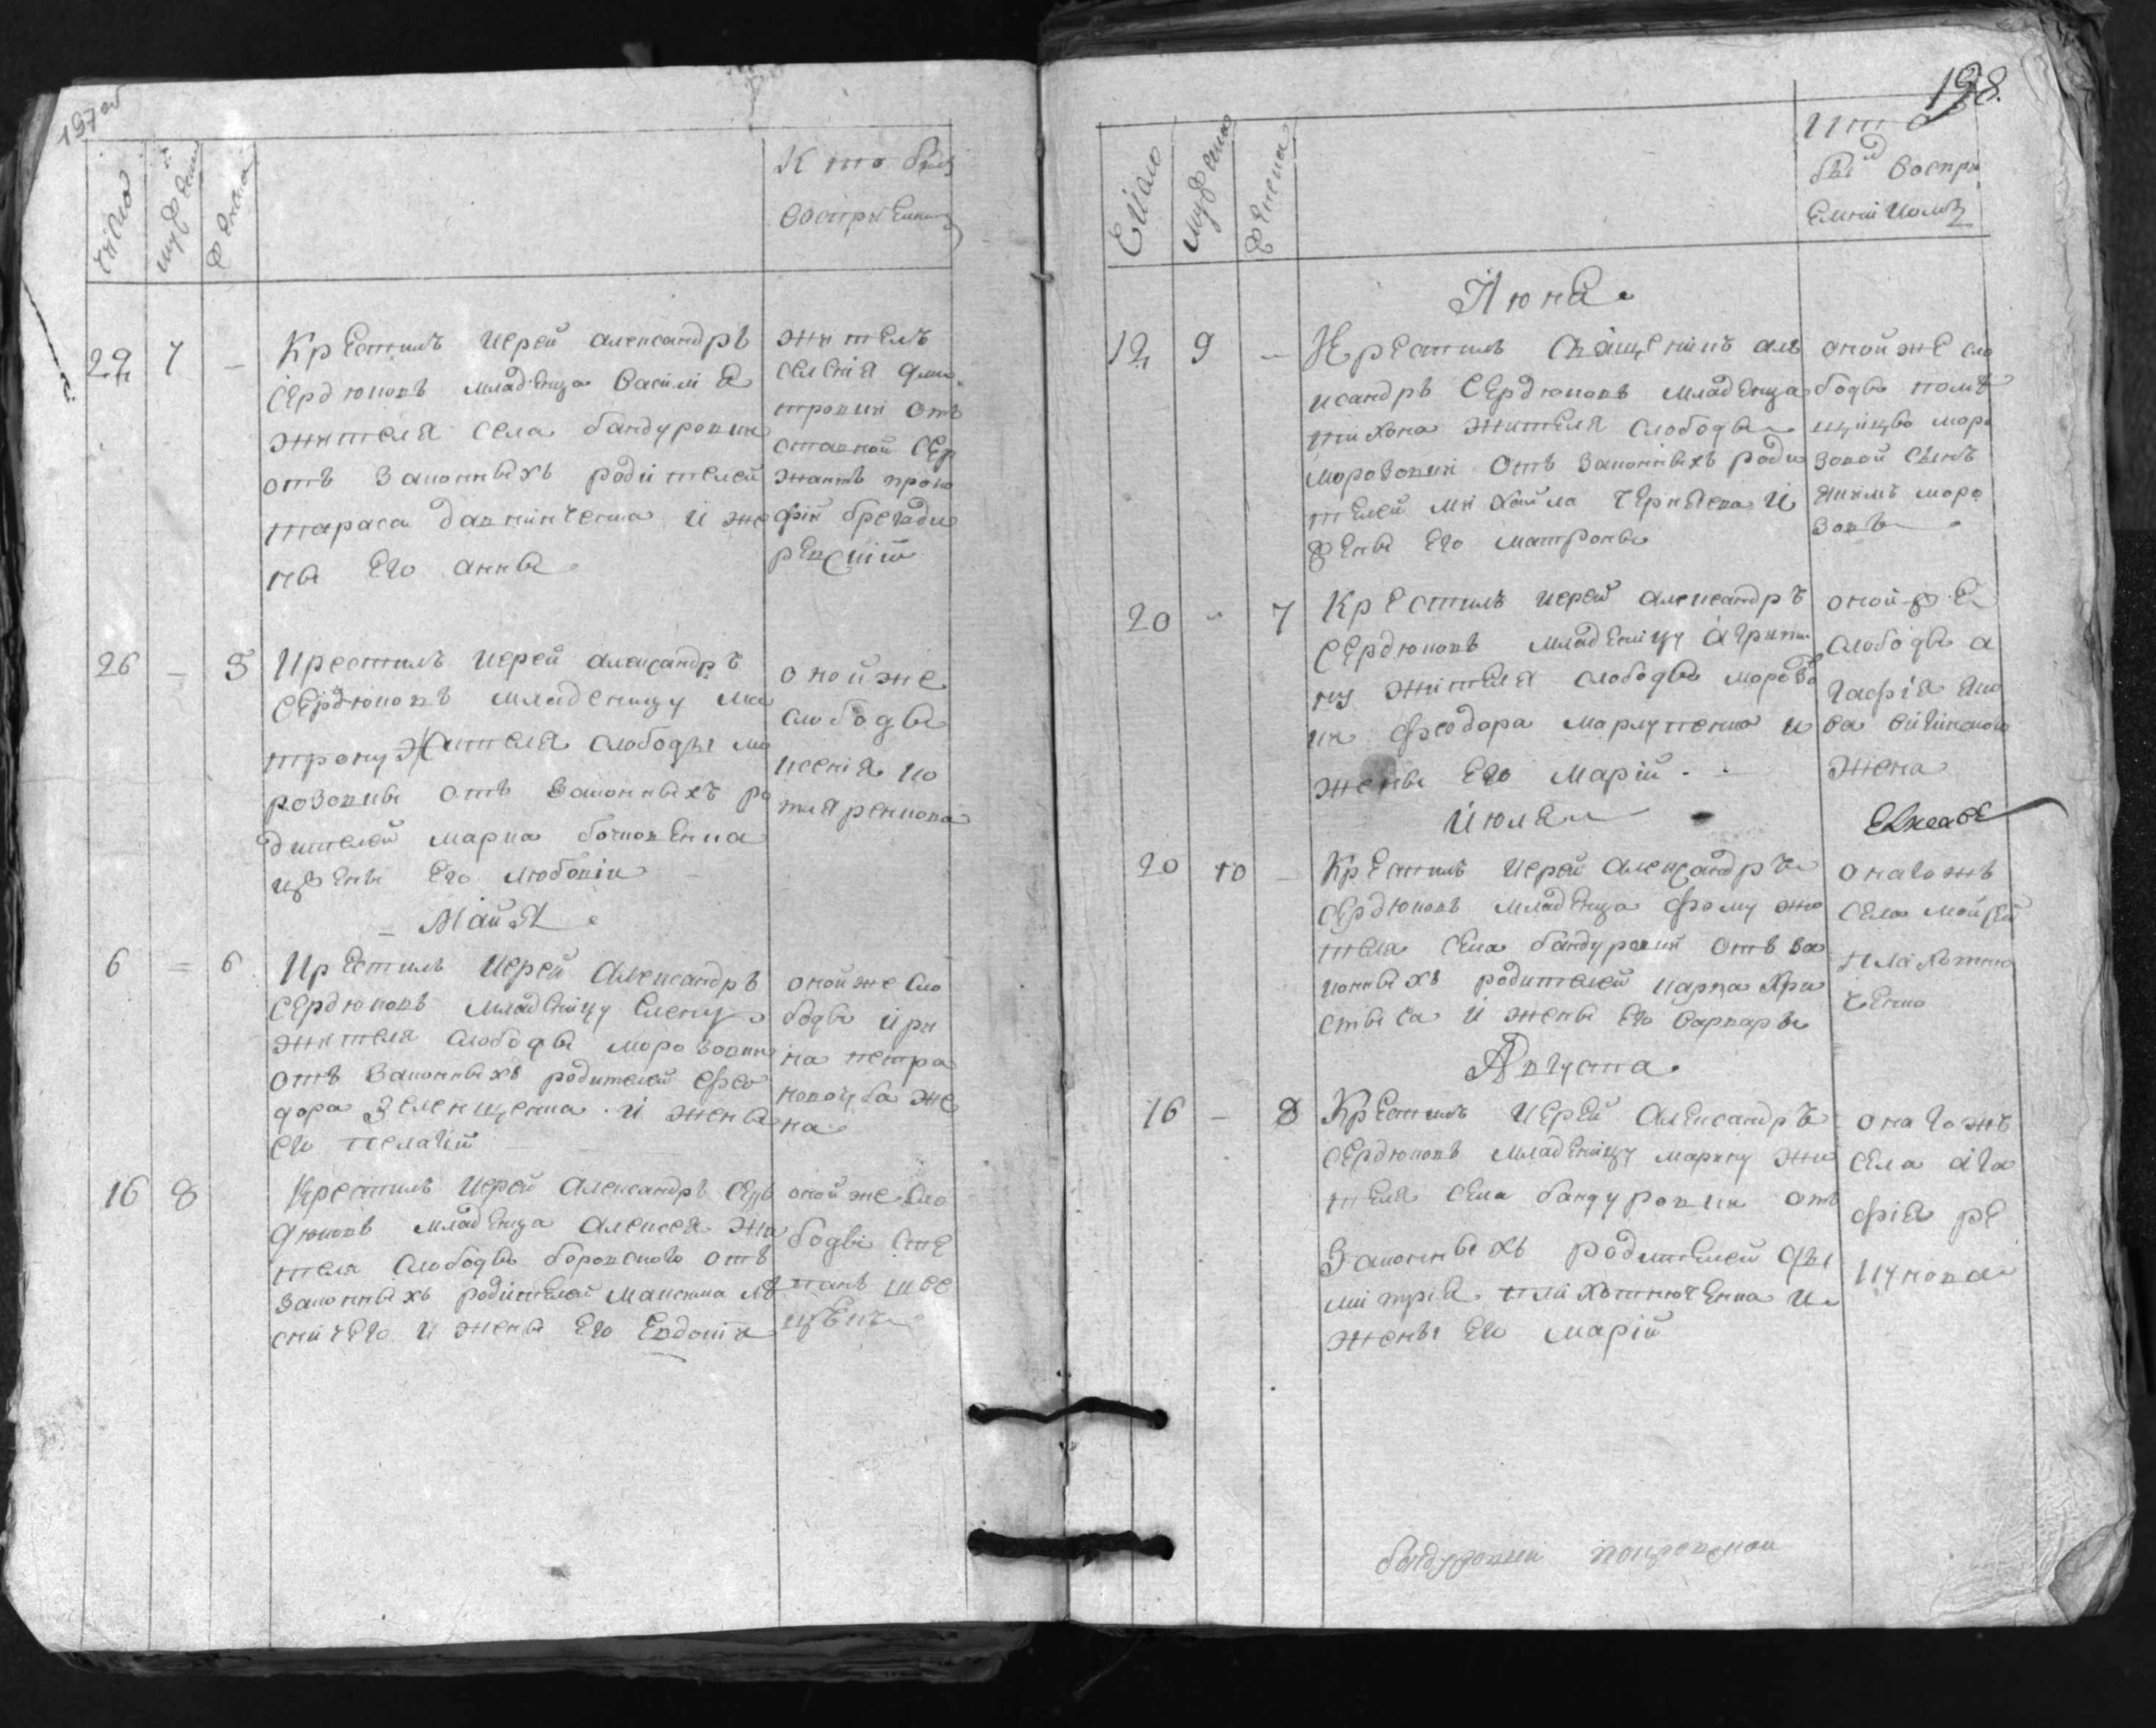 197 об
число
мужеска
женска
Кто былъ
восприемни
22 7 – Крестилъ иерей александръ
сердюковъ младенца василія
жителя села бандуровки
отъ законныхъ родителей
тараса
ны его анны
житель
селенія дми
тровки отъ
ставной сер
жантъ проко
фій
26 – 5 Крестилъ иерей александръ
сердюковъ младеницу ма
трону жителя слободы мо
розовки отъ законныхъ ро
дителей марка
и жены его любовіи
оной же
слободы
ксенія ко
тляренкова
Майя
6 = 6 Крестилъ иерей александръ
сердюковъ младеницу елену
жителя слободы морозовки
отъ законныхъ родителей фео
дора зеленщенка и жены
его пелагіи
оной же сло
боды ири
на петра
жена
16 8 Крестилъ иерей александръ сер
дюковъ младенца алексея жи
теля слободы боровского отъ
законныхъ родителей максима
и жены его евдокіи
оной же сло
боды сте
панъ
198
число
мужеска
женска
кто
былъ воспри
емникомъ
Июня
12 9 – Крестилъ священикъ але
ксандръ сердюковъ младенца
тихона жителя слободы
морозовки отъ законныхъ роди
телей михаила черняева и
жены его матроны
оной же сло
боды поме
щицы моро
зовой сынъ
якимъ моро
зовъ
20 – 7 Крестилъ иерей александръ
сердюковъ младеницу агрипи
ну жителя слободы морозов
ки феодора марлутенка и
жены его маріи
оной же
слободы а
гафія яко
ва
жена
Июля
20 10 – Крестилъ иерей александръ
сердюковъ младенца фому жи
теля села бандуровки отъ за
конныхъ родителей карпа хри
стыса и жены его варвары
онагожъ
села мойсей
плахотню
ченко
Августа
16 – 8 Крестилъ иерей александръ
сердюковъ младеницу марину жи
теля села бандуровки отъ
законныхъ родителей ды
митрія плахотнюченка и
жены его маріи
онагожъ
села ага
фія ре
кунова
бандуровки покровской